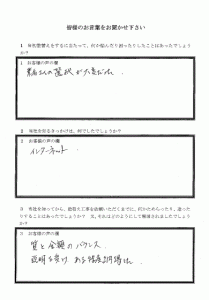 皆様のお言葉をお聞かせ下さい
1 外壁塗替えをするに当たって、何か悩んだり困ったりしたことはあったでしょうか?
1 お客様の声の欄
業者さんの選択が大変だった。
2 当社を知るきっかけは、何でしたでしょうか?
2 お客様の声の欄
インターネット
3 当社を知ってから、塗替え工事をお願いいただくまでに、何かためらったり、迷ったりすることはあったでしょうか? 又、それはどのようにして解消されましたでしょうか?
3 お客様の声の欄
質と金額のバランス。
説明を受け、ある程度納得した。